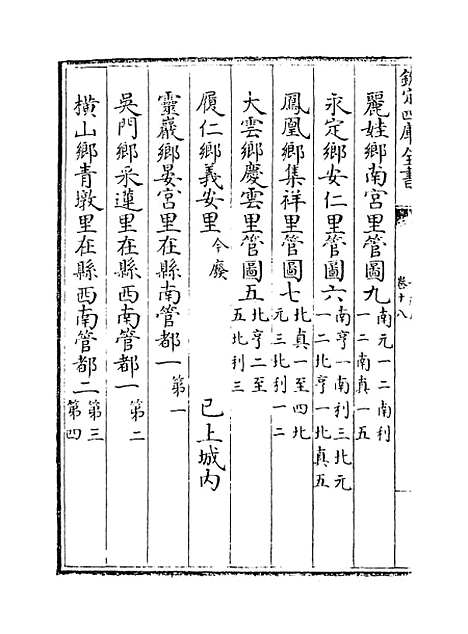 欽定四庫全書
卷十八
麗娃鄉南宮里管圖九南元一二南利一二南真一五
永定鄉安仁里管圖六南亨一南利三北元一二北亨一北真五
鳳凰鄉集祥里管圖七北真一至四北元三北利一二
大雲鄉慶雲里管圖五北亨二至五北利三
履仁鄉義安里今廢 已上城内
靈巖鄉晏宮里在縣南管都一第一
吳門鄉采蓮里在縣西南管都一第二
橫山鄉青墩里在縣西南管都二第三第四